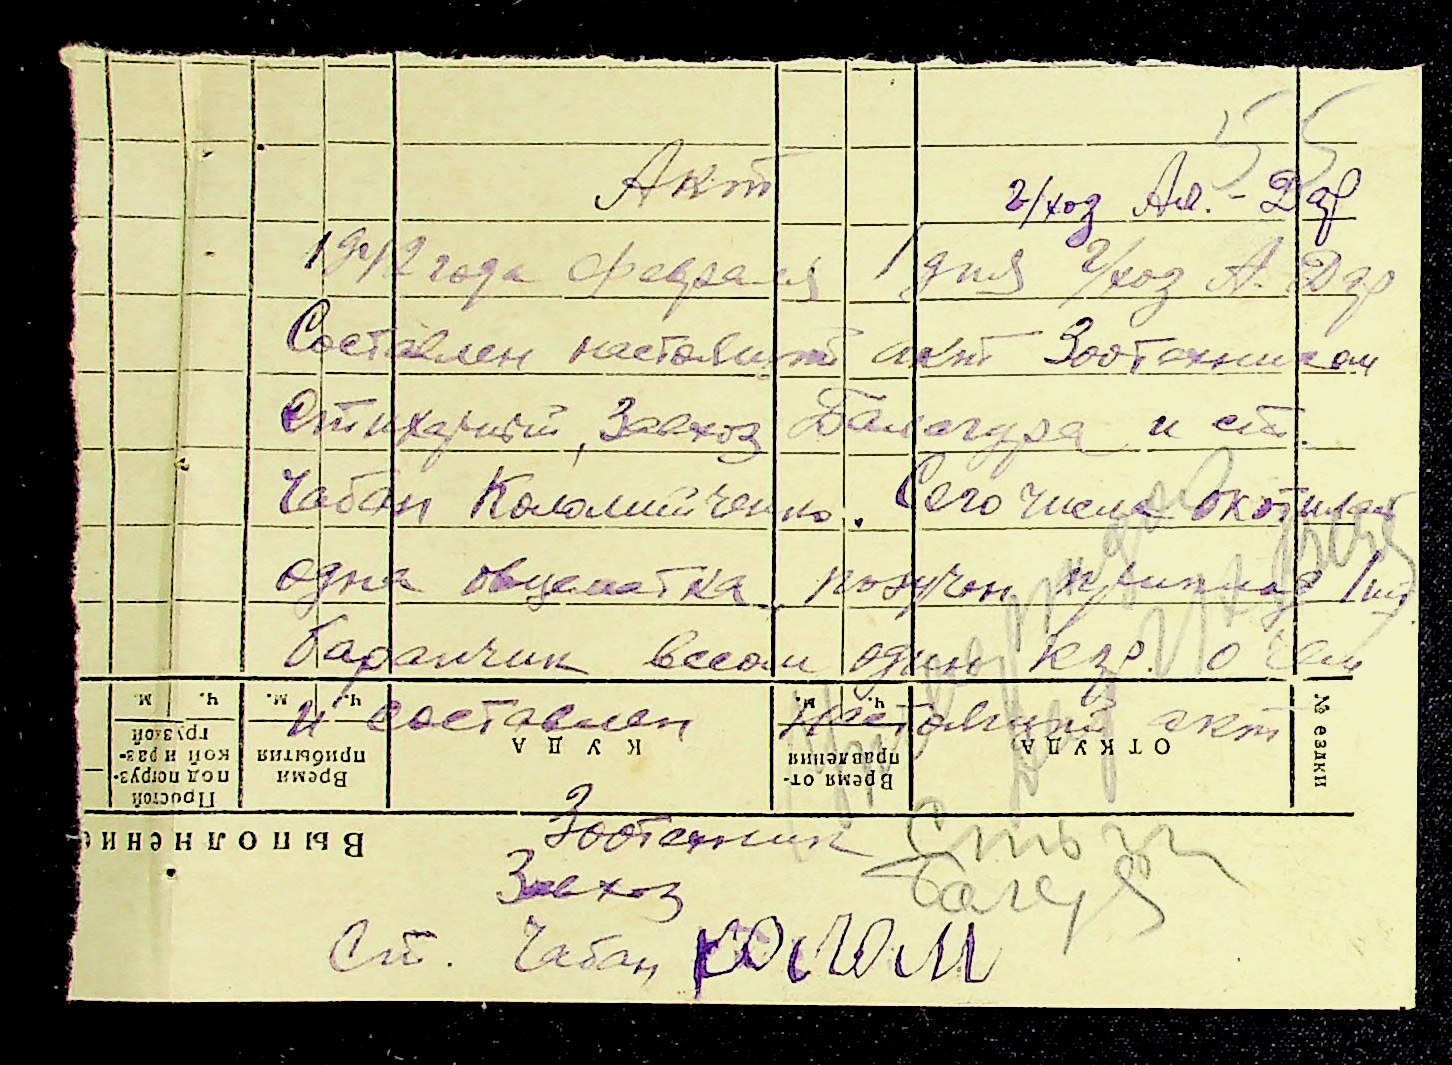 55
Акт
г/хоз Ал.-Дзр
1942 года февраля 1 дня г/хоз А. Дзр
Составлен настоящий акт Зоотехником
Завхоз Балагура и ст.
Чабан Коломийченко. Сего числа окотилась
одна овцематка, получен приплод 1 шт
баранчик весом один кгр. о чем
и составлен настоящий акт
Зоотехник
Завхоз Балагура
Ст. Чабан КОЛОМ
№ ездки
ОТКУДА
Время отправления
ч. м.
КУДА
Время прибытия
ч. м.
Простой под погрузкой и разгрузкой
ч. м.
Выполнение